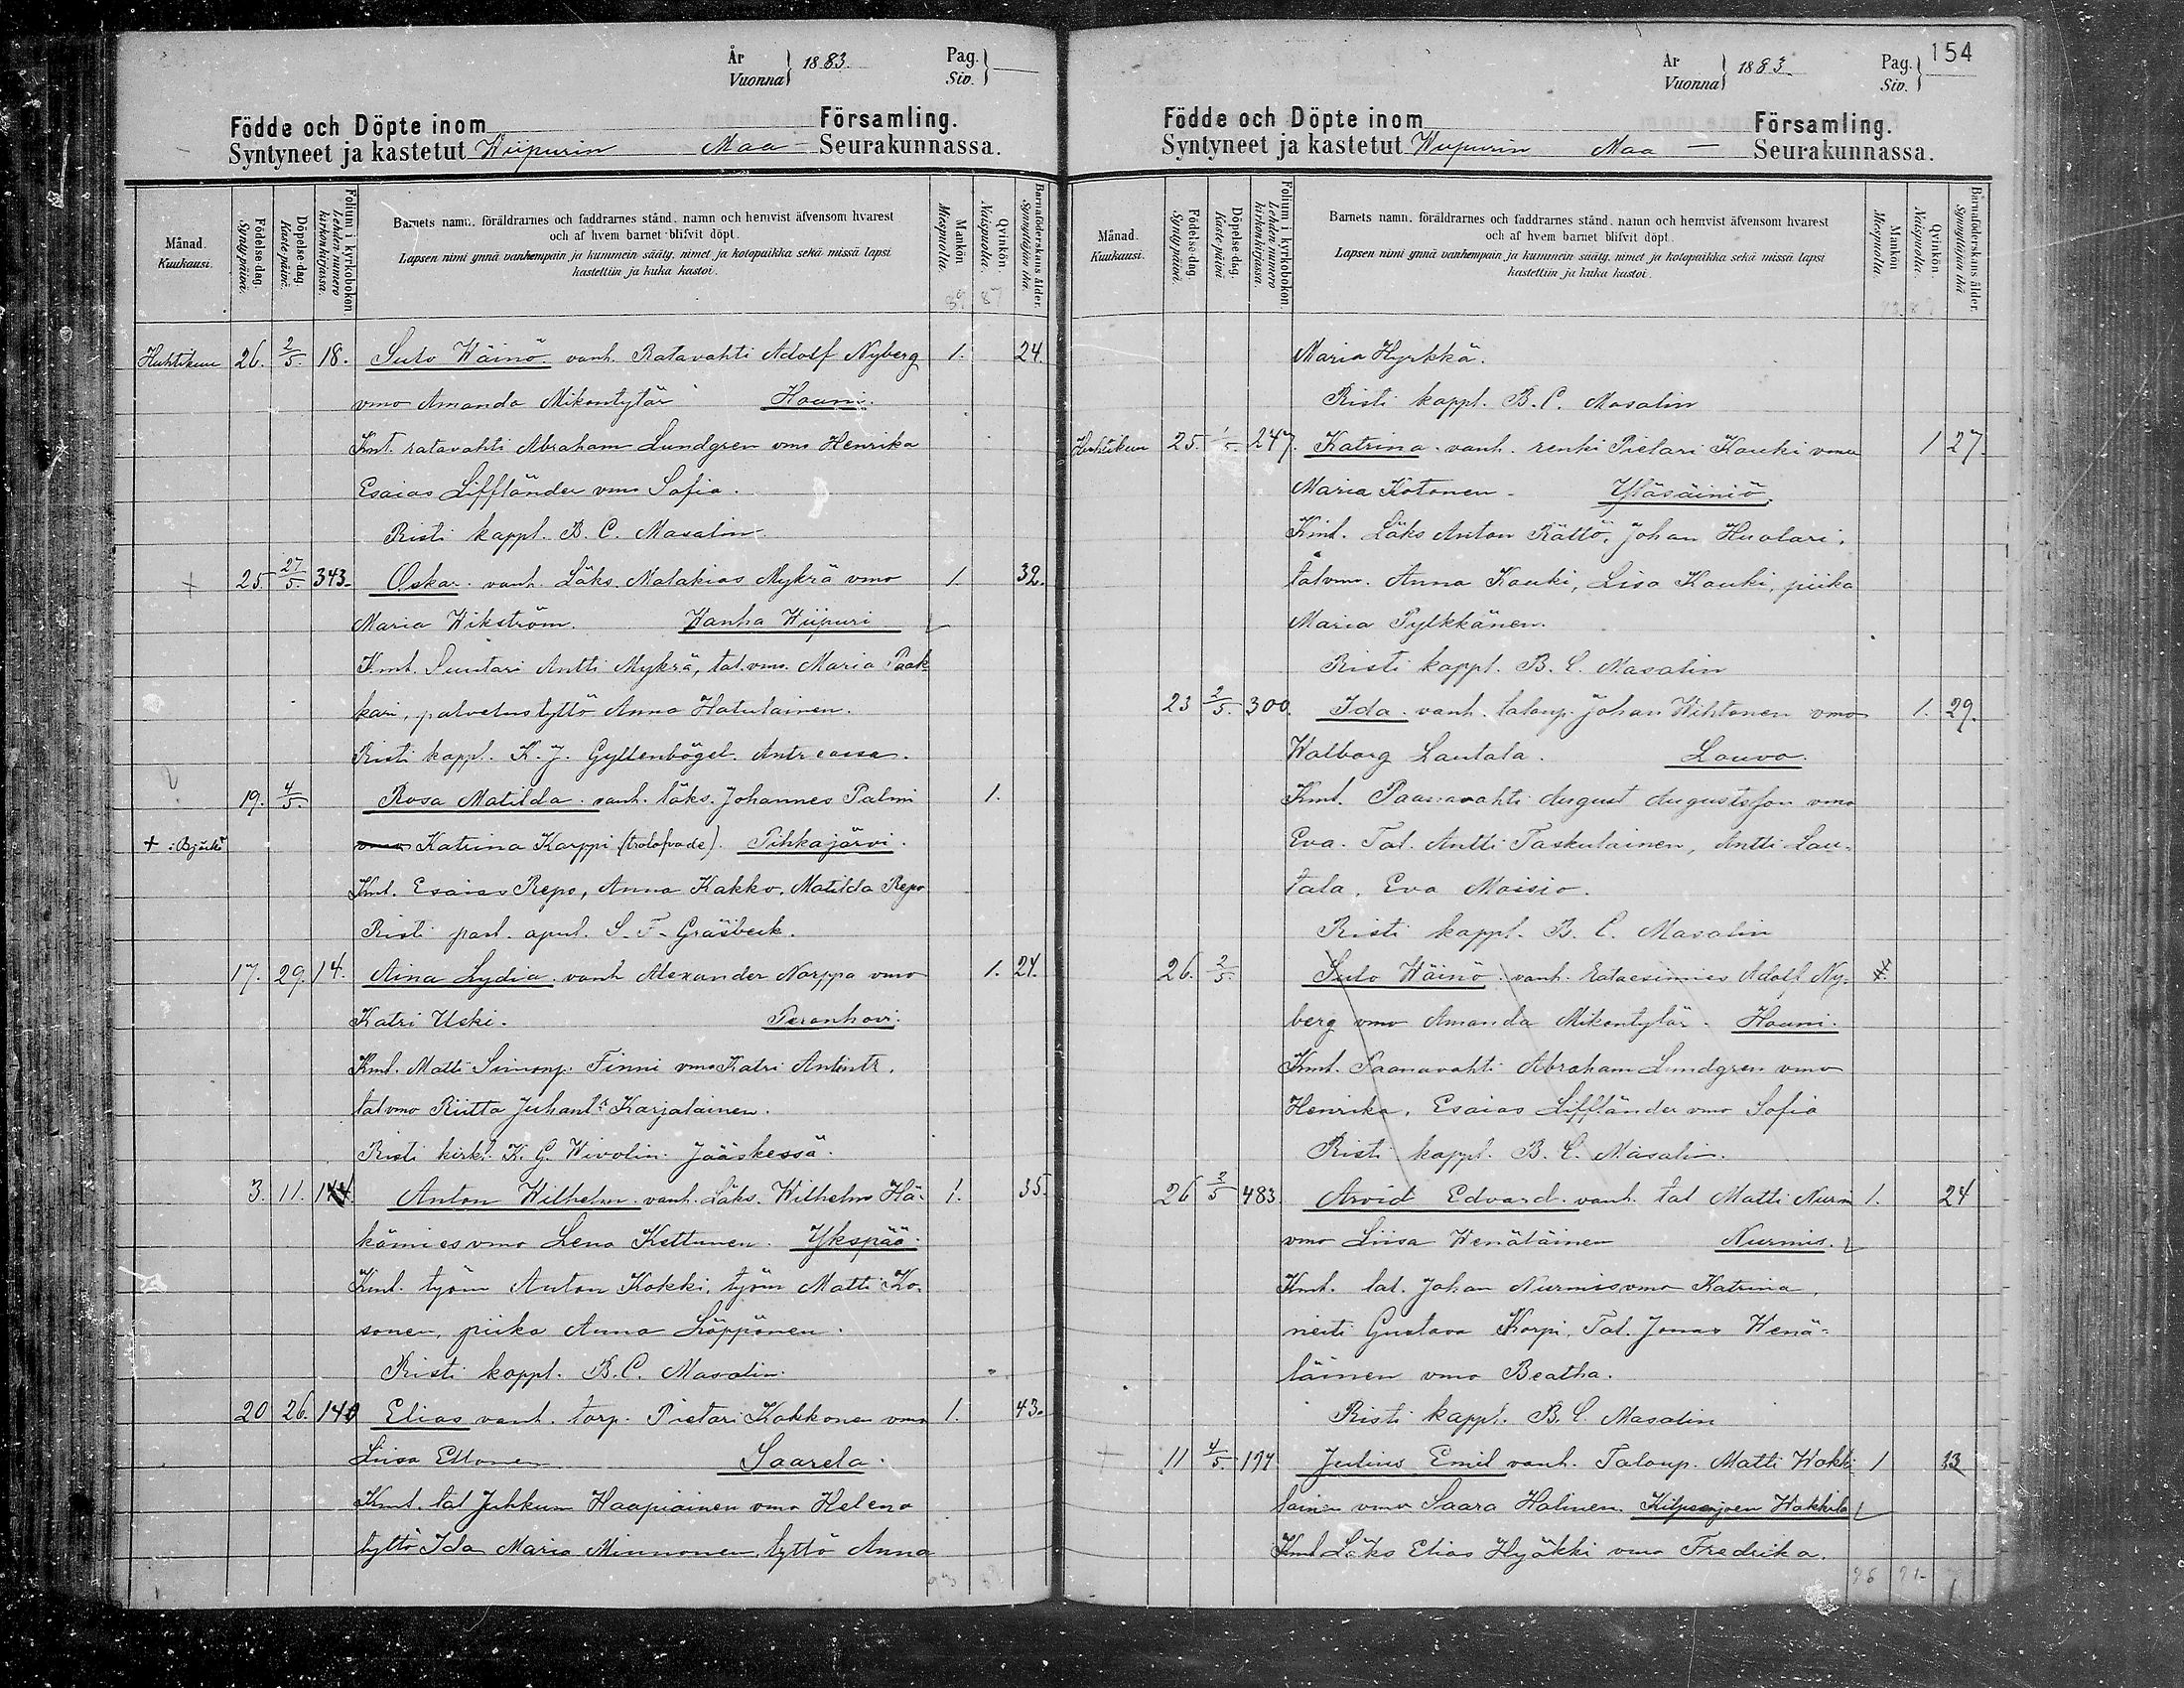 År Vuonna } 1883. Pag. Siv. }
Födde och Döpte inom Församling.
Syntyneet ja kastetut Wiipurin Maa- Seurakunnassa.
Månad. Kuukausi.
Födelse-dag. Syntypäivä.
Döpelse-dag. Kastepäivä.
Folium i kyrkoboken. Lehden numero kirkonkirjassa.
Barnets namn, föräldrarnes och faddrarnes stånd, namn och hemvist äfvensom hvarest
och af hvem barnet blifvit döpt.
Lapsen nimi ynnä vanhempain ja kummein sääty, nimet ja kotopaikka sekä missä lapsi
kastettiin ja kuka kastoi.
Mankön. Miespuolia.
Qvinkön. Naispuolia.
Barnaföderskans ålder. Synnyttäjän ikä.
Huhtikuu 26. 2/5. 18. Sulo Wäinö. vanh. Ratavahti Adolf Nyberg 1. 24.
vmo Amanda Mikontytär Houni.
Kmt. ratavahti Abraham Lundgren vmo Henrika
Esaias Liffländer vmo Sofia.
Risti kappl. B. C. Masalin
25. 27/5. 343. Oskar. vanh. Läks. Malakias Mykrä vmo 1. 32.
Maria Wikström. Wanha Wiipuri
Kmt. Suutari Antti Mykrä, tal.vmo. Maria Paak-
kari, palvelustyttö Anna Hatulainen.
Risti kappl. K. J. Gyllenbögel. Antreassa.
19. 4/5 Rosa Matilda. vanh. läks. Johannes Palmi 1.
+ i Björkö vmo Katrina Karppi (trolofvade). Pihkajärvi.
Kmt. Esaias Repo, Anna Kakko, Matilda Repo
Risti past. apul. S. F. Gräsbeck.
17. 29. 14. Aina Lydia. vanh Alexander Norppa vmo 1. 24.
Katri Uski. Paranhovi.
Kmt. Matti Simonp. Finni vmo Katri Antintr.
tal vmo Riitta Juhantr Karjalainen.
Risti kirkh. K. G. Wivolin. Jääskessä.
3. 11. 144. Anton Wilhelm. vanh. Läks. Wilhelm Hä- 1. 35.
kämies vmo Lena Kettunen. Ykspää.
Kmt. työm Anton Kokki, työm Matti Ko-
sonen, piika Anna Läppönen.
Risti kappl. B. C. Masalin.
20 26. 140 Elias vanh. torp. Pietari Kakkonen vmo 1. 43.
Liisa Ellonen Saarela.
Kmt. tal Juhkum Haapiainen vmo Helena
tyttö Ida Maria Minnonen, tyttö Anna
154
År Vuonna } 1883. Pag. Siv. }
Födde och Döpte inom Församling.
Syntyneet ja kastetut Wiipurin Maa — Seurakunnassa.
Månad. Kuukausi.
Födelse-dag. Syntypäivä.
Döpelse-dag. Kastepäivä.
Folium i kyrkoboken. Lehden numero kirkonkirjassa.
Barnets namn, föräldrarnes och faddrarnes stånd, namn och hemvist äfvensom hvarest
och af hvem barnet blifvit döpt.
Lapsen nimi ynnä vanhempain ja kummein sääty, nimet ja kotopaikka sekä missä lapsi
kastettiin ja kuka kastoi.
Mankön. Miespuolia.
Qvinkön. Naispuolia.
Barnaföderskans ålder. Synnyttäjän ikä
Maria Hyrkkä.
Risti kappl. B. C. Masalin
Huhtikuu 25. 1/5. 247. Katrina. vanh. renki Pietari Kauki vmo 1 27.
Maria Kotonen. Yläsäiniö.
Kmt. Läks Anton Rättö, Johan Huolari,
tal vmo. Anna Kauki, Lisa Kauki, piika
Maria Pylkkänen.
Risti kappl. B. C. Masalin
23 2/5. 300. Ida. vanh. talonp. Johan Wihtonen vmo 1. 29.
Walborg Lautala. Louvo.
Kmt. Paanavahti August Augustsson vmo
Eva. Tal. Antti Taskulainen, Antti Lau-
tala, Eva Moisio.
Risti kappl. B. C. Masalin
26. 2/5. Sulo Wäinö. vanh. Rataesimies Adolf Ny-
berg vmo Amanda Mikontytär. Houni.
Kmt. Paanavahti Abraham Lundgren vmo
Henrika, Esaias Liffländer vmo Sofia
Risti kappl. B. C. Masalin.
26 3/5 483. Arvid Edvard. vanh. tal Matti Nurmi 1. 24
vmo Liisa Wenäläinen Nurmis.
Kmt. tal. Johan Nurmis vmo Katrina,
neiti Gustava Korpi, Tal. Jonas Wenä-
läinen vmo Beatha.
Risti kappl. B. C. Masalin
11 4/5. 197 Julius Emil vanh. Talonp. Matti Wakki- 1 23
lainen vmo Saara Halinen. Kilpeenjoen Wakkila
Kmt Läks Elias Hyökki vmo Fredrika.